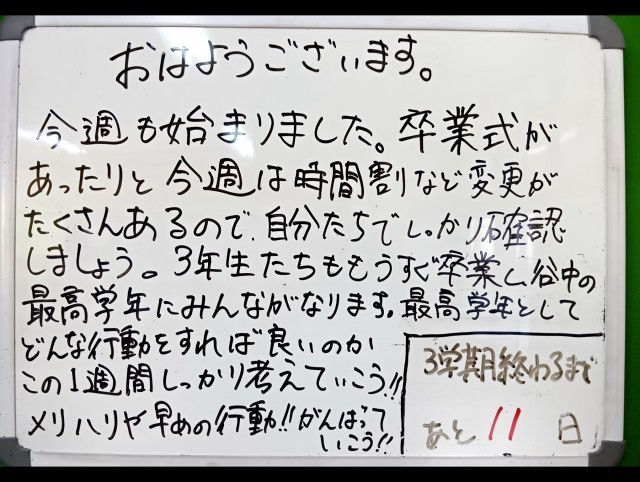 おはようございます。
今週も始まりました。卒業式が
あったりと今週は時間割など変更が
たくさんあるので、自分たちでしっかり確認
しましょう。3年生たちももうすぐ卒業し谷中の
最高学年にみんながなります。最高学年として
どんな行動をすれば良いのか
この1週間しっかり考えていこう!!
メリハリや早めの行動!!がんばって
いこう!!
3学期終わるまで
あと 11 日